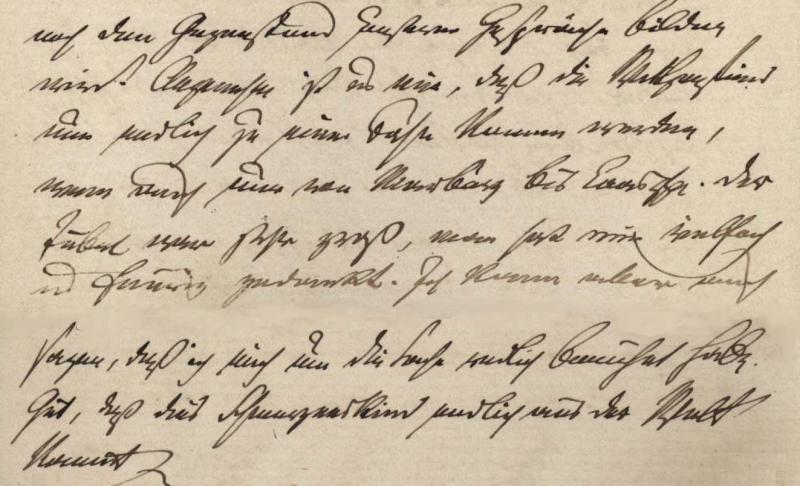 noch den Gegenstand unserer Gespräche bilden
wird. Angenehm ist es mir, daß die
nun endlich zu einer Bahn kommen werden,
wenn auch nur von Marburg bis Laasphe. Der
Jubel war sehr groß, man hat mir vielfach
gedankt. Ich kann aber auch
sagen, daß ich mich um die Sache redlich bemüht habe.
Gut, daß dies Schmerzenskind endlich aus der Welt
kommt